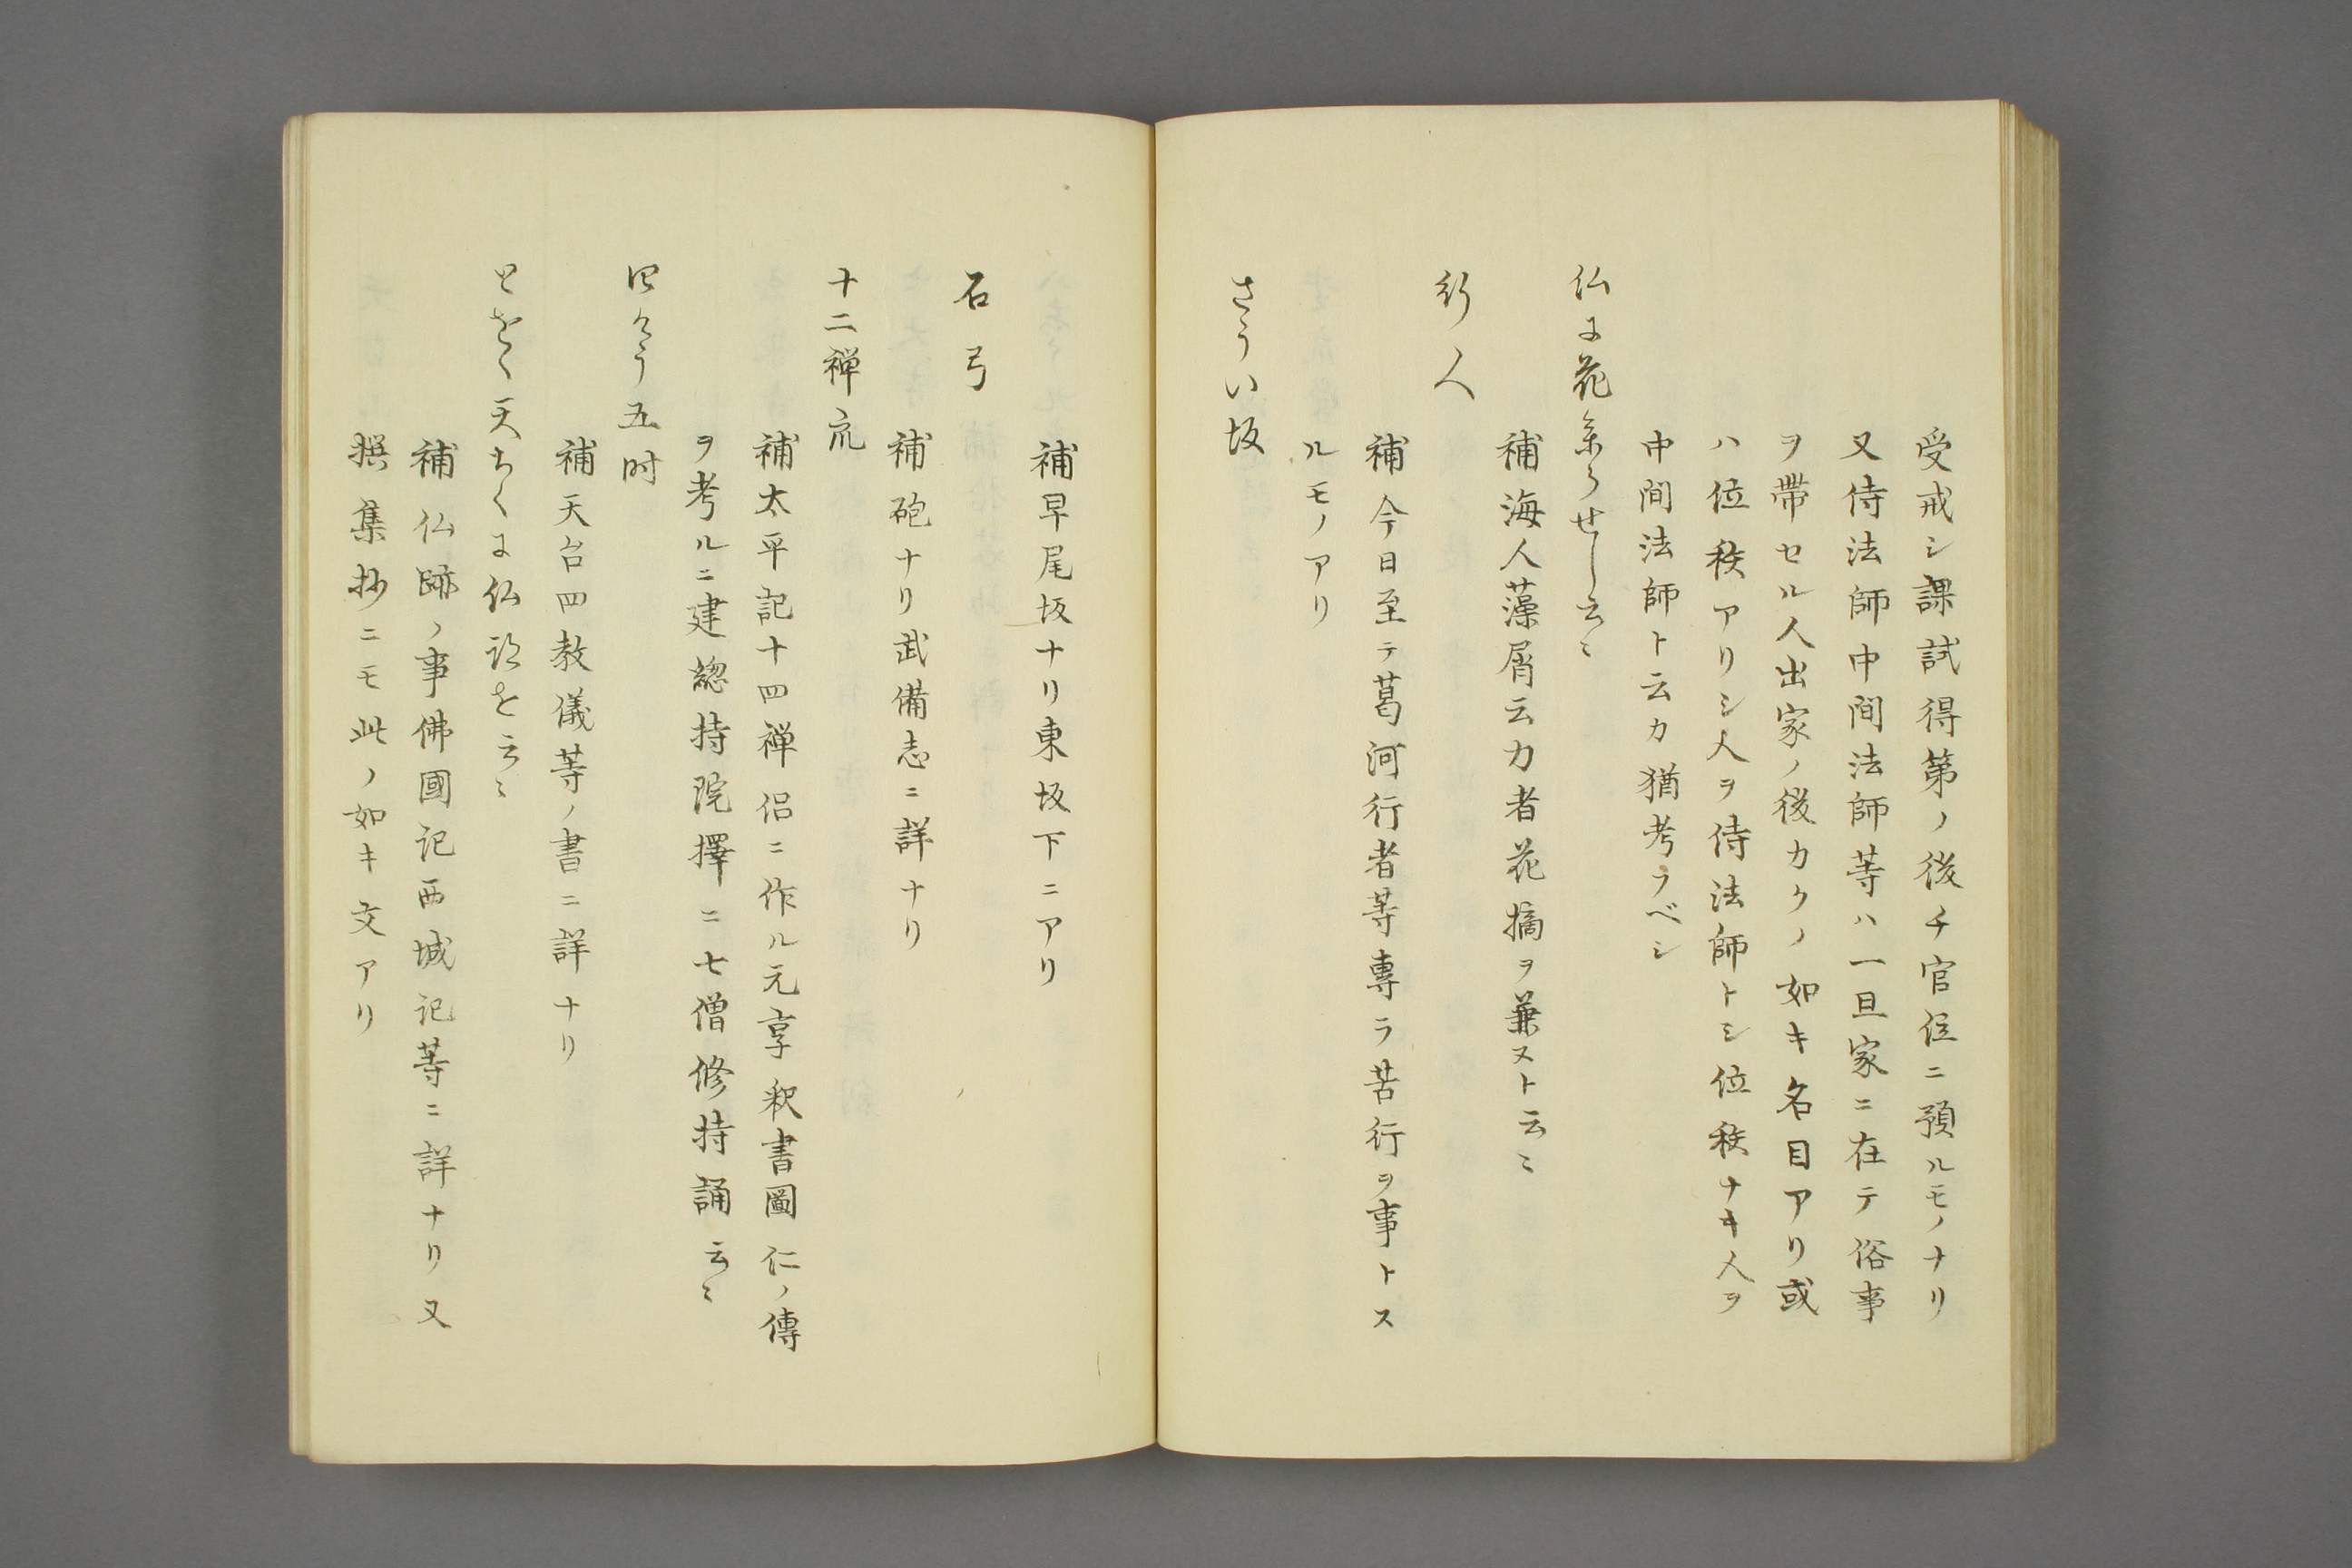 受戒シ課試得第ノ後チ官位ニ預ルモノナリ
又侍法師中間法師等ハ一旦家ニ在テ俗事
ヲ帯セル人出家ノ後カクノ如キ名目アリ或
ハ位秩アリシ人ヲ侍法師トシ位秩ナキ人ヲ
中間法師ト云カ猶考フベシ
仏に花参らせし云〻
補海人藻屑云力者花摘ヲ兼ヌト云〻
行人
補今日至テ葛河行者等専ラ苦行ヲ事トス
ルモノアリ
さうい坂
補早尾坂ナリ東坂下ニアリ
石弓
補砲ナリ武備志ニ詳ナリ
十二禅衆
補太平記十四禅侶ニ作ル元享釈書圓仁ノ傳
ヲ考ルニ建總持院擇ニ七僧修持誦云〻
四けう五时
補天台四教儀等ノ書ニ詳ナリ
とをく天ちくに仏跡を云〻
補仏跡ノ事佛國記西域記等ニ詳ナリ又
撰集抄ニモ此ノ如キ文アリ